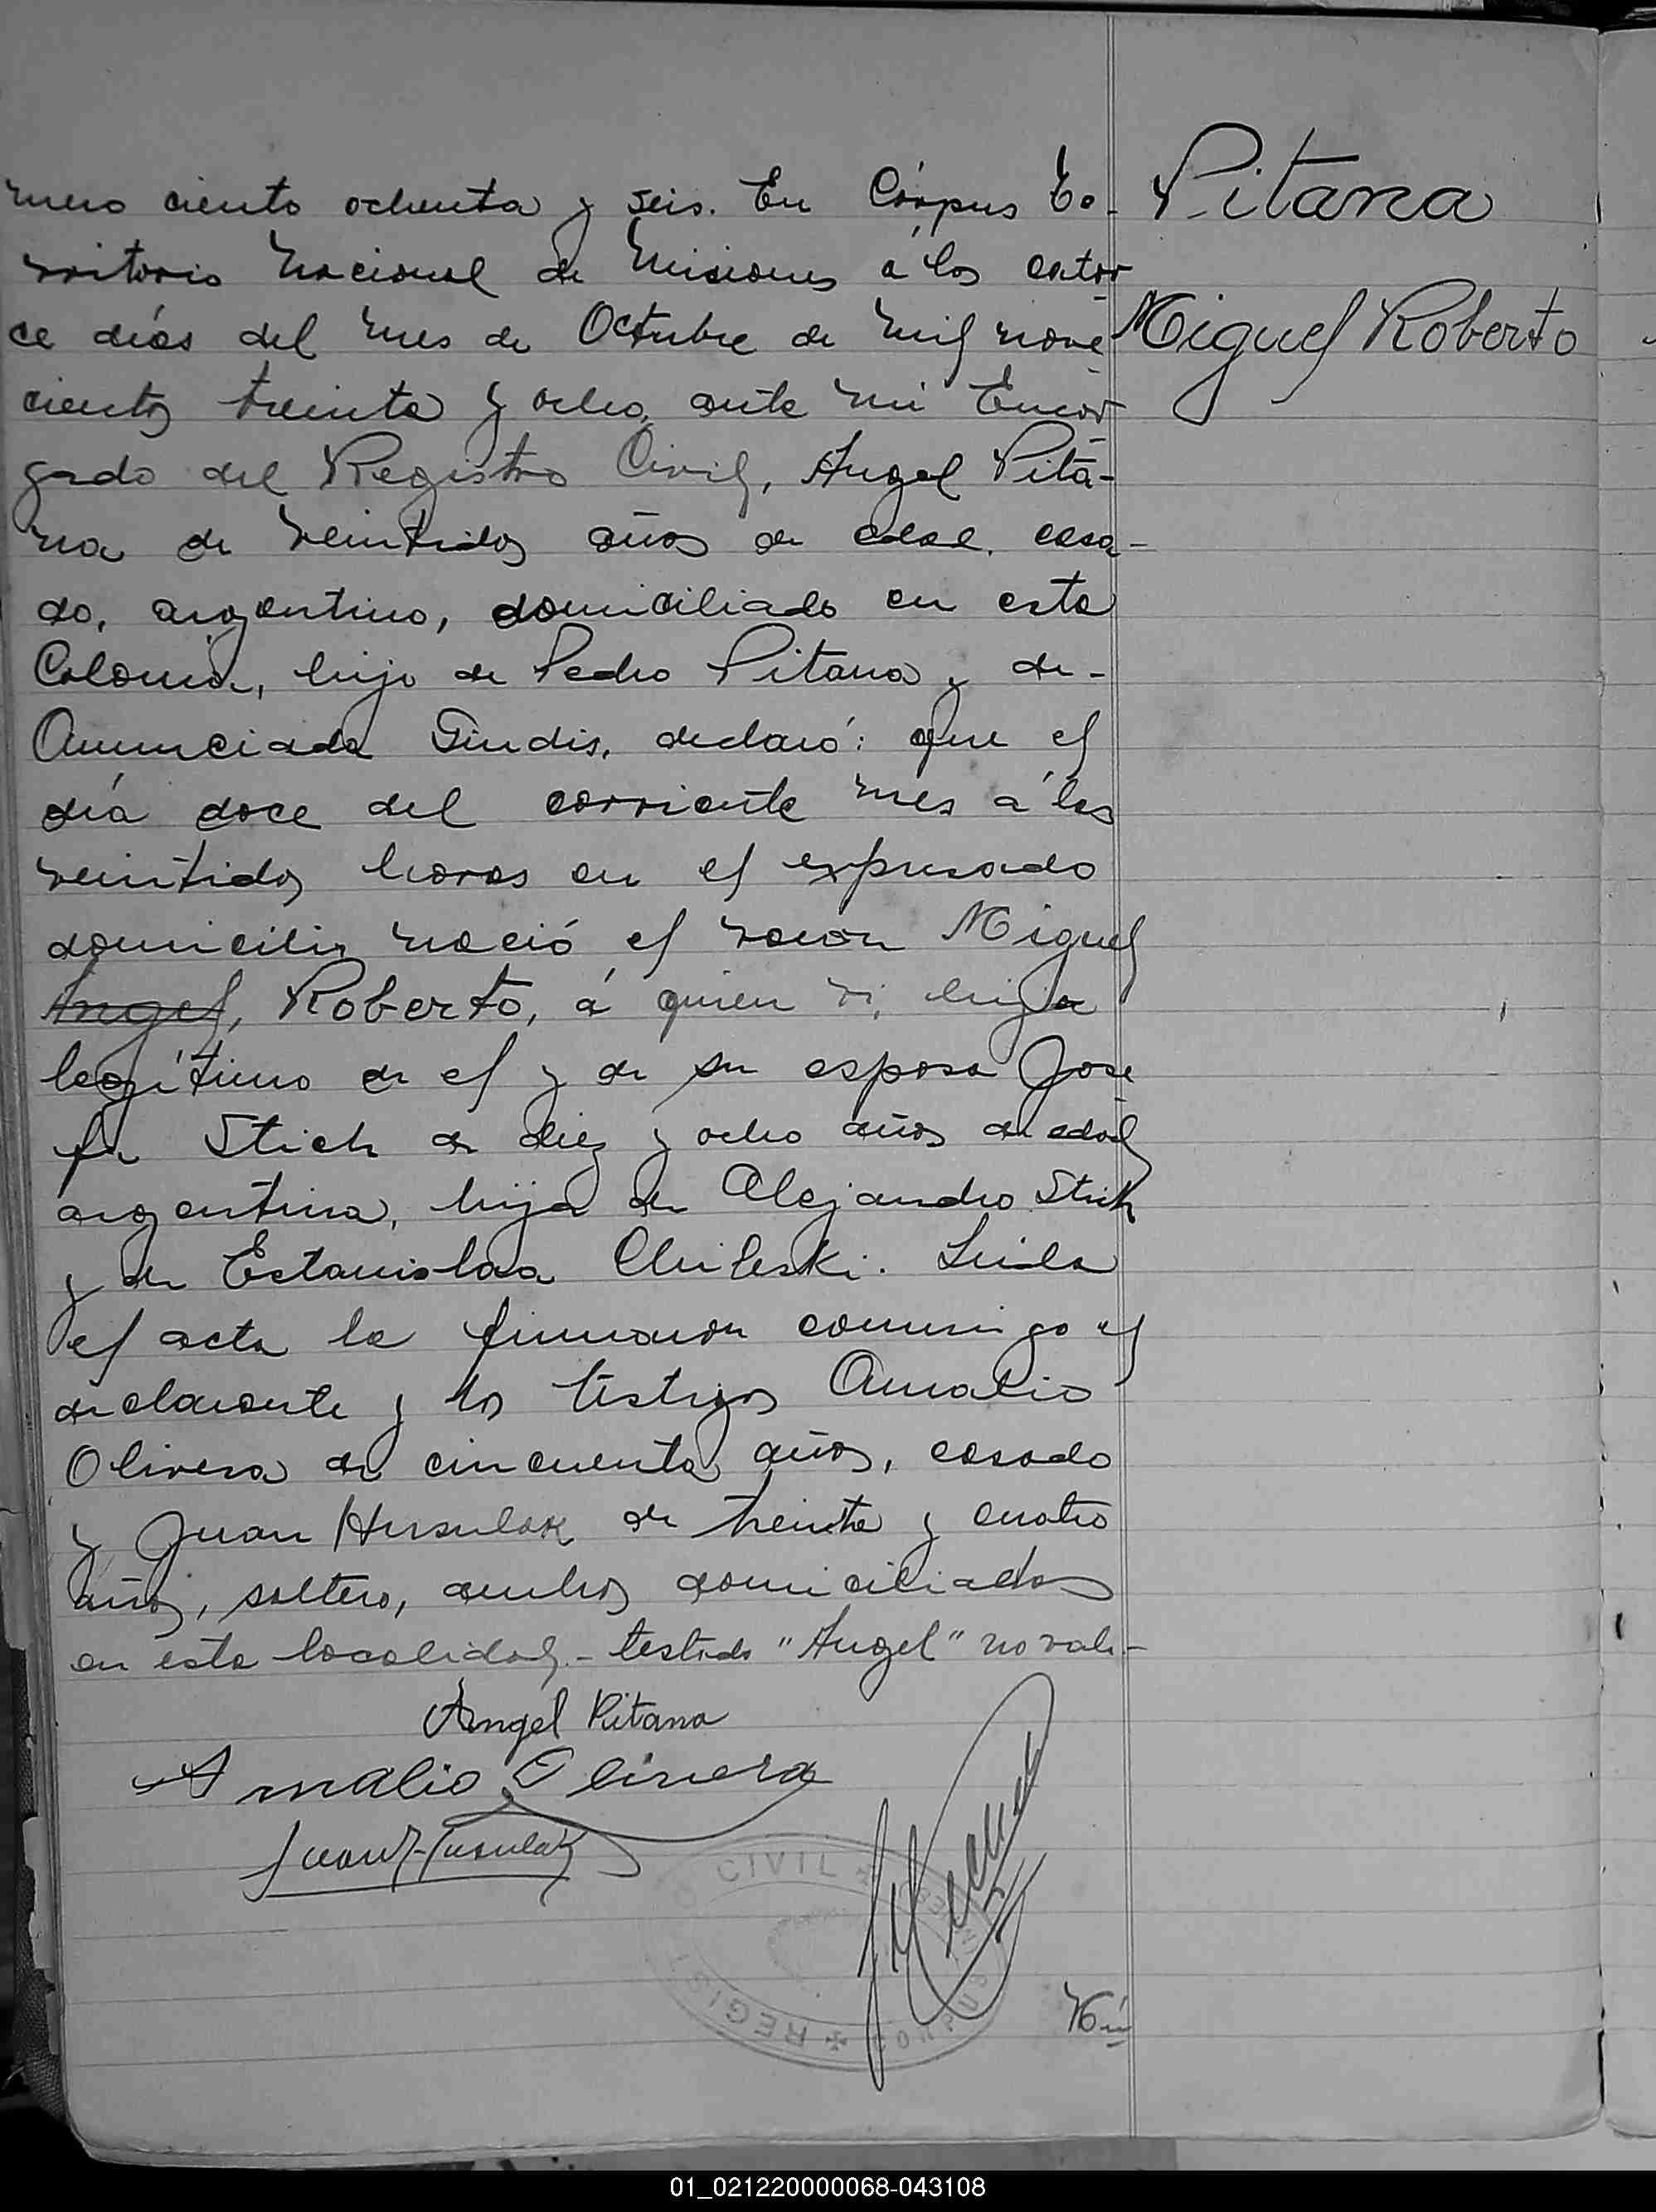 mero ciento ochenta y seis. En Córpus Te-
rritorio Nacional de Misiones á los cator-
ce días del mes de Octubre de mil nove-
cientos treinta y ocho, ante mi Encar-
gado del Registro Civil, Angel Pita-
na de veintidos años de edad, casa-
do, argentino, domiciliado en esta
Colonia, hijo de Pedro Pitana y de-
Anunciada Gindis, declaró: que el
día doce del corriente mes á las
veintidos horas en el expresado
domicilio nació el varon Miguel
Angel, Roberto, á quien vi, hijo
legítimo de el y de su esposa Jose-
fa Stich de diez y ocho años de edad
argentina, hija de Alejandro Stich
y de Estanislaa Chileski. Leida
el acta la firmaron conmigo el
declarante y los testigos Amalio
Olivera de cincuenta años, casado
y Juan Husulak de treinta y cuatro
años, soltero, ambos domiciliados
en esta localidad.- testado "Angel" no vale-
Angel Pitana
Amalio Olivera
Juan Husulak
CIVIL
REGIS
CORPUS
Nú
Pitana
Miguel Roberto
01_021220000068-043108